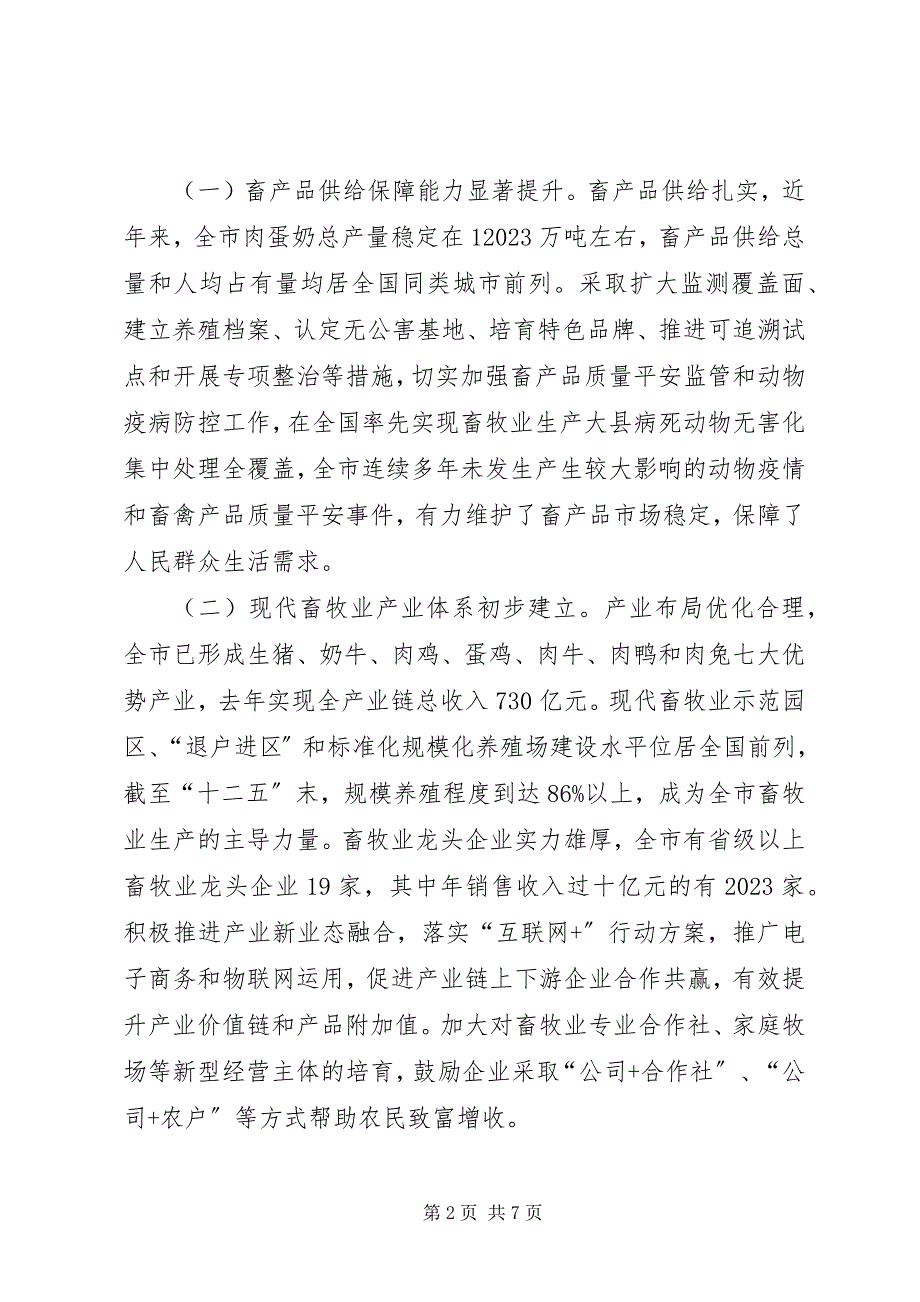 （一）畜产品供给保障能力显著提升。畜产品供给扎实，近
年来，全市肉蛋奶总产量稳定在12023万吨左右，畜产品供给总
量和人均占有量均居全国同类城市前列。采取扩大监测覆盖面、
建立养殖档案、认定无公害基地、培育特色品牌、推进可追溯试
点和开展专项整治等措施，切实加强畜产品质量平安监管和动物
疫病防控工作，在全国率先实现畜牧业生产大县病死动物无害化
集中处理全覆盖，全市连续多年未发生产生较大影响的动物疫情
和畜禽产品质量平安事件，有力维护了畜产品市场稳定，保障了
人民群众生活需求。
（二）现代畜牧业产业体系初步建立。产业布局优化合理，
全市已形成生猪、奶牛、肉鸡、蛋鸡、肉牛、肉鸭和肉兔七大优
势产业，去年实现全产业链总收入730亿元。现代畜牧业示范园
区、“退户进区〞和标准化规模化养殖场建设水平位居全国前列，
截至“十二五〞末，规模养殖程度到达86%以上，成为全市畜牧
业生产的主导力量。畜牧业龙头企业实力雄厚，全市有省级以上
畜牧业龙头企业19家，其中年销售收入过十亿元的有2023家。
积极推进产业新业态融合，落实“互联网+〞行动方案，推广电
子商务和物联网运用，促进产业链上下游企业合作共赢，有效提
升产业价值链和产品附加值。加大对畜牧业专业合作社、家庭牧
场等新型经营主体的培育，鼓励企业采取“公司+合作社〞、“公
司+农户〞等方式帮助农民致富增收。
第2页 共7页